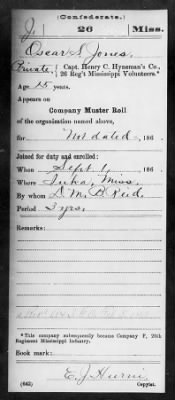 (Confederate.)
J 26 Miss.
Oscar S. Jones
Private, Capt. Henry C. Hyneman's Co.,
26 Reg't Mississippi Volunteers.*
Age 15 years.
Appears on
Company Muster Roll
of the organization named above,
for Not dated, 186 .
Joined for duty and enrolled:
When Sept. 1, 186 .
Where Iuka, Miss.
By whom D. M. B. Reid.
Period 3 yrs.
Remarks:
*This company subsequently became Company F, 26th
Regiment Mississippi Infantry.
Book mark:
E. J. Hurni
(642) Copyist.